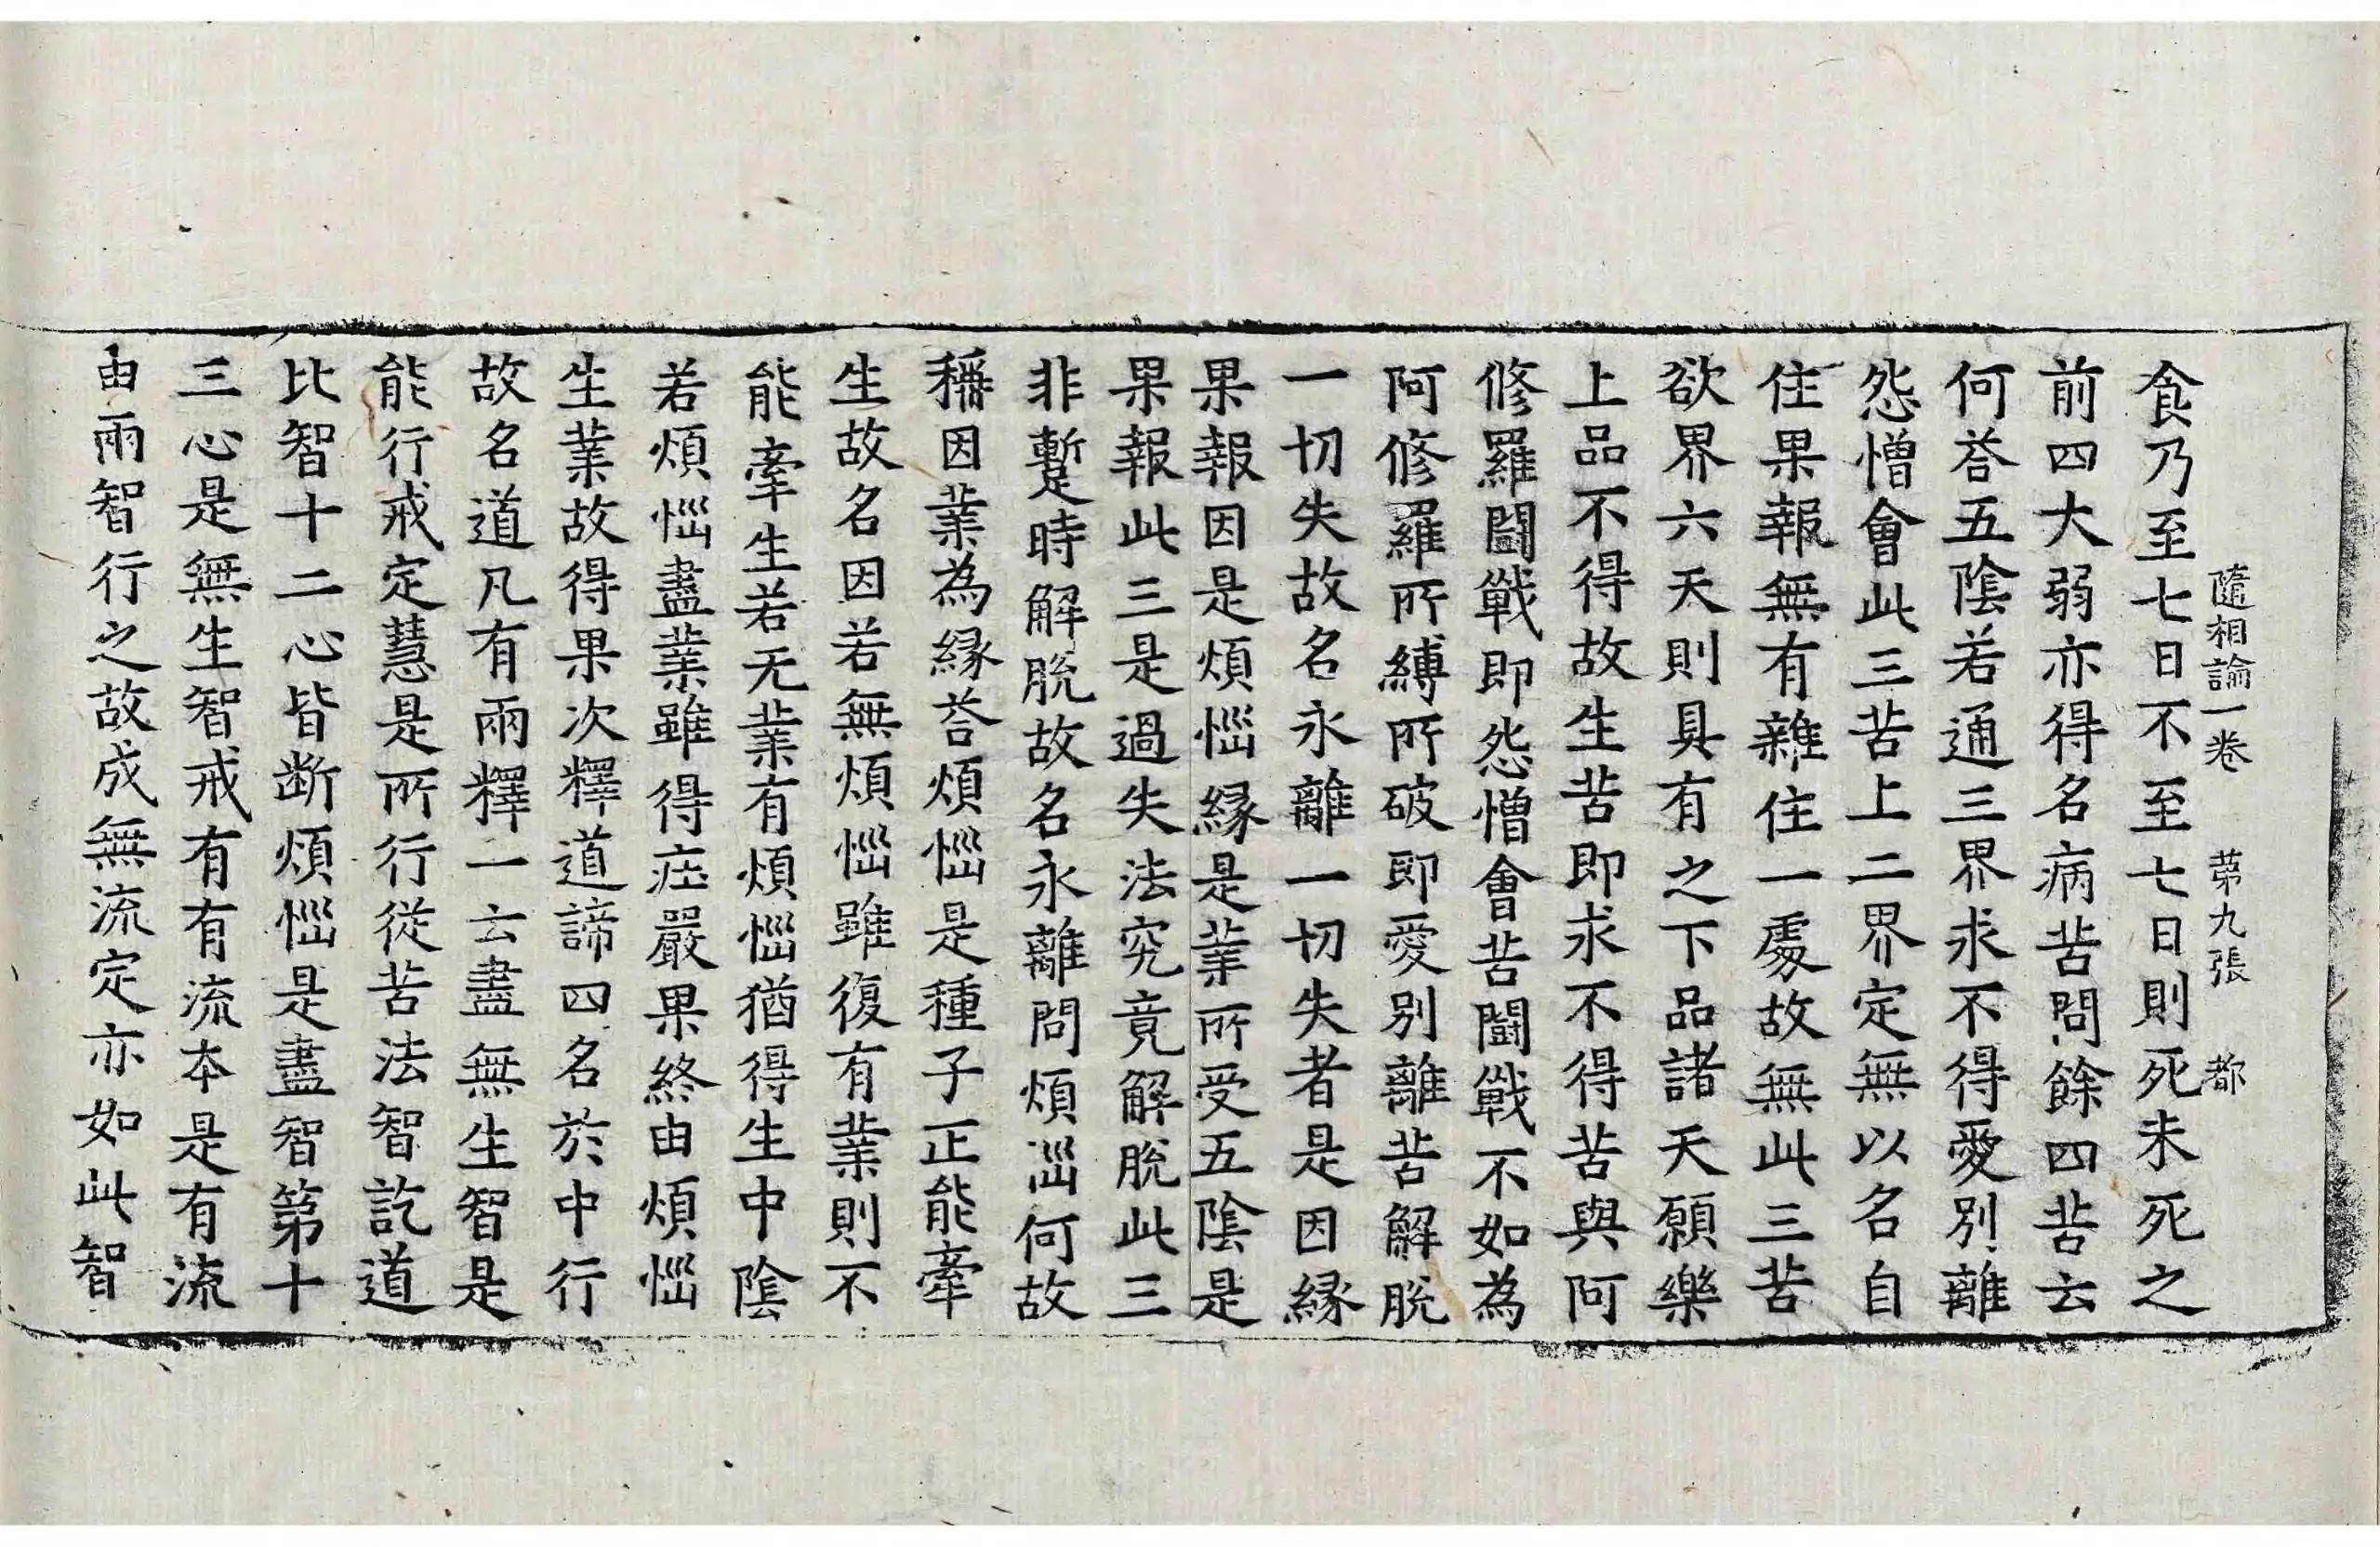 隨相論一卷 第九張 都
食乃至七日不至七日則死未死之
前四大弱亦得名病苦問餘四苦云
何荅五陰若通三界求不得愛別離
怨憎會此三苦上二界定無以名自
住果報無有雜住一處故無此三苦
欲界六天則具有之下品諸天願樂
上品不得故生苦即求不得苦與阿
修羅鬪戰即怨憎會苦鬪戰不如為
阿修羅所縛所破即愛別離苦解脫
一切失故名永離一切失者是因緣
果報因是煩惱緣是業所受五陰是
果報此三是過失法究竟解脫此三
非蹔時解脫故名永離問煩惱何故
稱因業為緣荅煩惱是種子正能牽
生故名因若無煩惱雖復有業則不
能牽生若无業有煩惱猶得生中陰
若煩惱盡業雖得庄嚴果終由煩惱
生業故得果次釋道諦四名於中行
故名道凡有兩釋一云盡無生智是
能行戒定慧是所行從苦法智訖道
比智十二心皆斷煩惱是盡智第十
三心是無生智戒有有流本是有流
由兩智行之故成無流定亦如此智